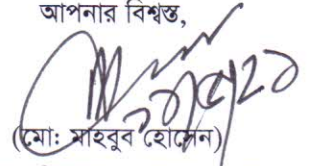 আপনার বিশ্বস্ত,
(মো: মাহবুব হোসেন)